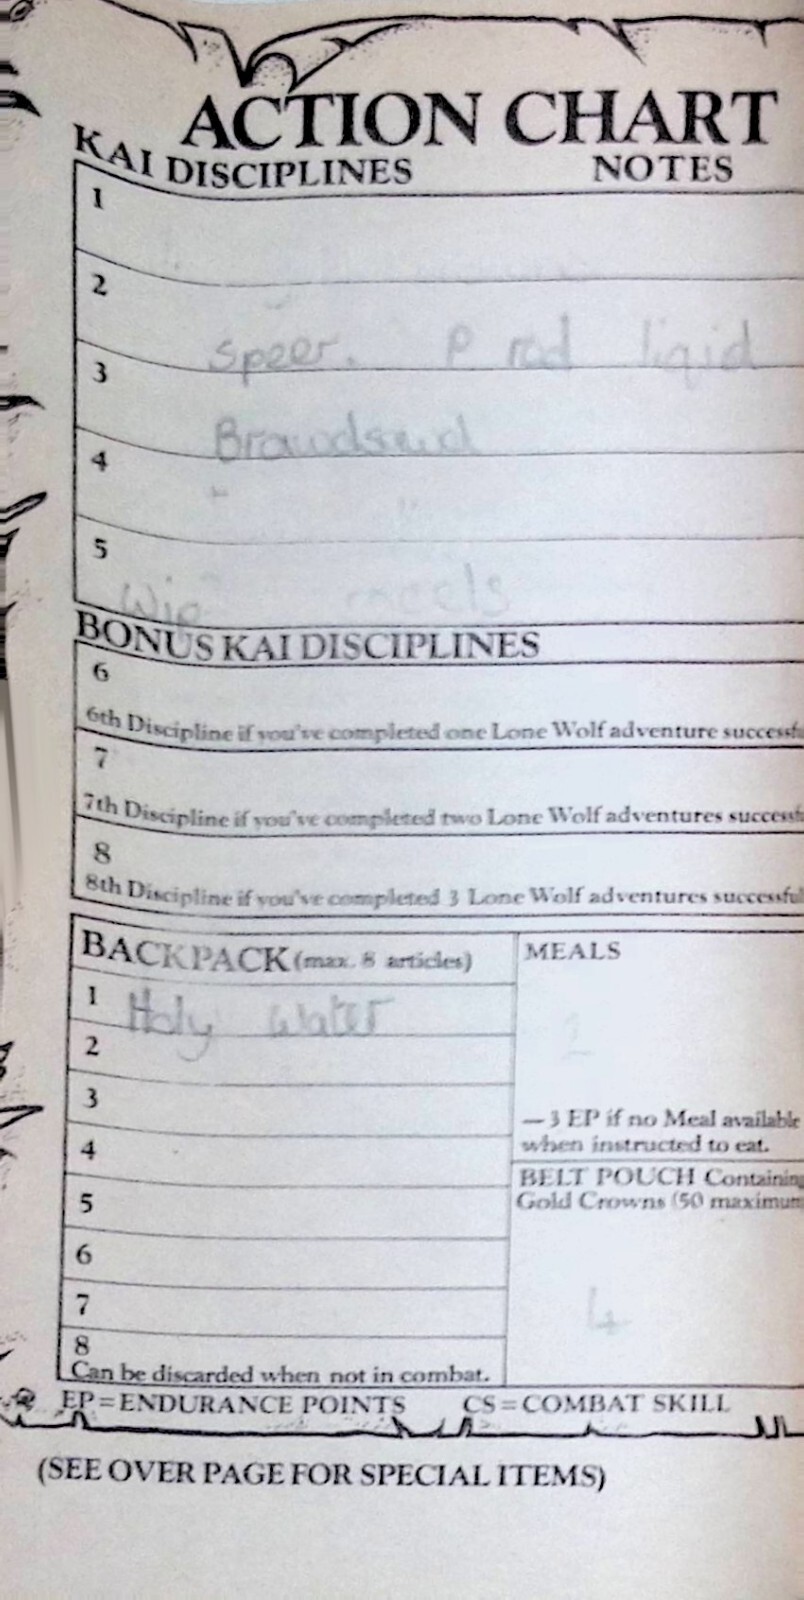 ACTION CHART
KAI DISCIPLINES NOTES
1
2
speer. P red liqid
3
4
5
meels
BONUS KAI DISCIPLINES
6
6th Discipline if you've completed one Lone Wolf adventure successfu
7
7th Discipline if you've completed two Lone Wolf adventures successfu
8
8th Discipline if you've completed 3 Lone Wolf adventures successful
BACKPACK (max. 8 articles)
1 Holy water
2
3
4
5
6
7
8
Can be discarded when not in combat.
MEALS
—3 EP if no Meal available
when instructed to eat.
BELT POUCH Containing
Gold Crowns (50 maximum
4
EP=ENDURANCE POINTS CS=COMBAT SKILL
(SEE OVER PAGE FOR SPECIAL ITEMS)